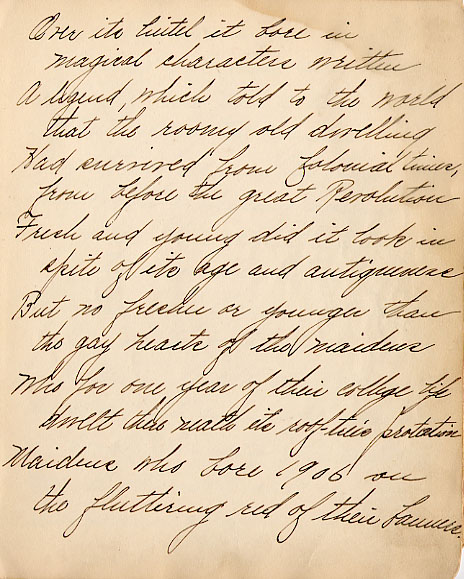 Over its lintel it bore in
magical characters written
A legend, which told to the world
that the roomy old dwelling
Had survived from Colonial times,
from before the great Revolution
Fresh and young did it look in
spite of its age and antiqueness
But no fresher or younger than
the gay hearts of the maidens
Who for one year of their college life
dwelt there neath its roof-tree's protection
Maidens who bore 1906 on
the fluttering red of their banners.